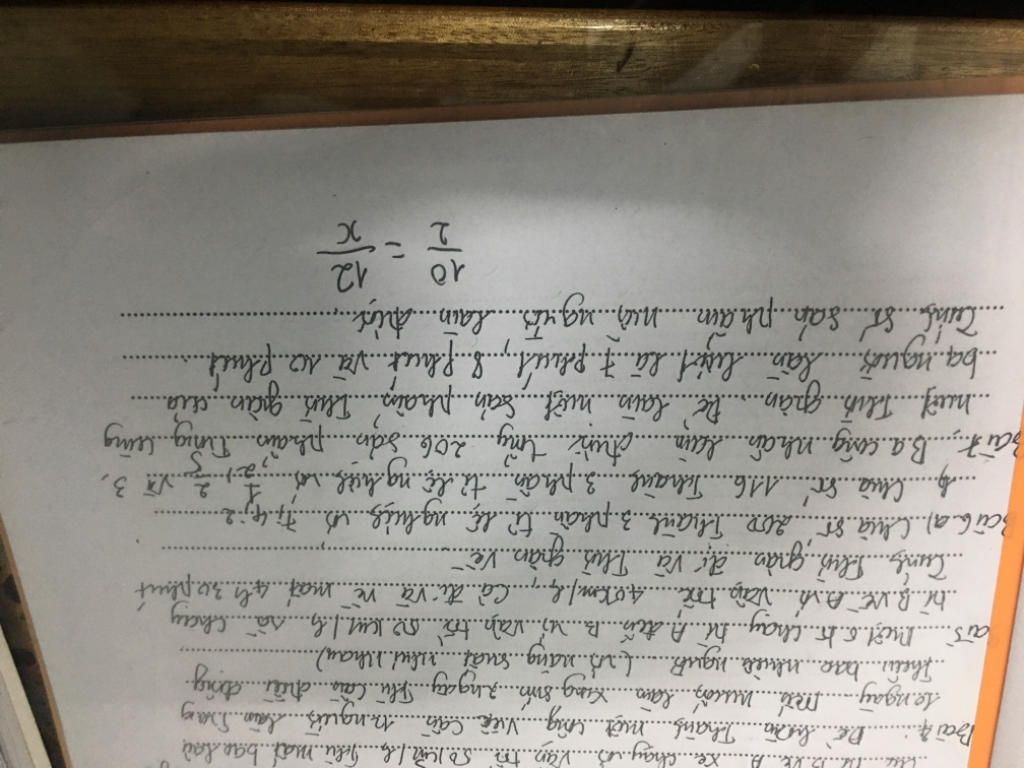 xe chạy với vận tốc 50 km/h thì mất bao lâu
Bài 4: Để hoàn thành một công việc cần 12 người làm trong
10 ngày. Nếu muốn làm xong sớm 2 ngày thì cần điều động
thêm bao nhiêu người (với năng suất như nhau)
Bài 5 Một ô tô chạy từ A đến B với vận tốc 50 km/h, rồi chạy
từ B về A với vận tốc 40 km/h. Cả đi và về mất 4h30 phút
Tính thời gian đi và thời gian về
Bài 6. a) Chia số 200 thành 3 phần tỉ lệ nghịch với
b, Chia số 116 thành 3 phần tỉ lệ nghịch với 1/2, 2/5 và 3
Bài 7. Ba công nhân làm được tổng 206 sản phẩm trong cùng
một thời gian. Để làm một sản phẩm, thời gian của
ba người lần lượt là 7 phút, 8 phút và 12 phút
Tính số sản phẩm mỗi người làm được
10/2 = 12/x